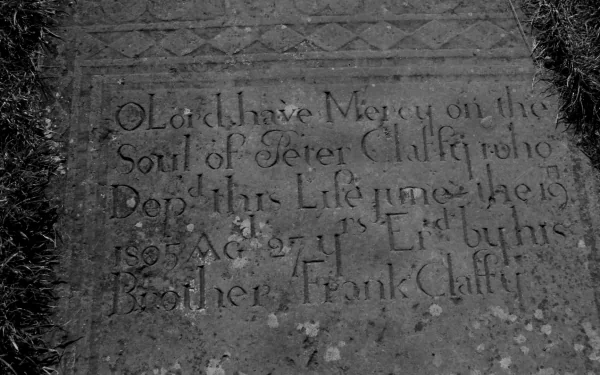 O Lord have Mercy on the
Soul of Peter Claffy who
Dep.d this Life June the 19th
1805 Ag.d 27 yrs Er.d by his
Brother Frank Claffy